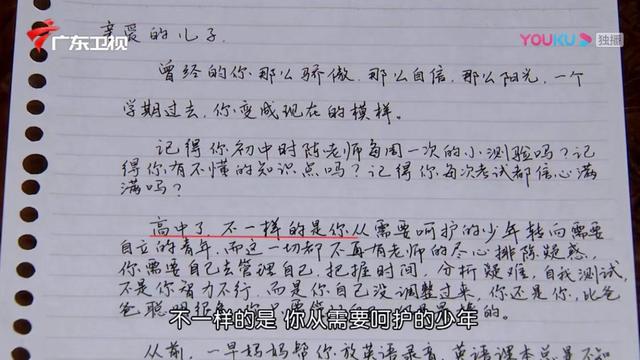 广东卫视
YOUKU 独播
亲爱的儿子.
曾经的你那么骄傲.那么自信.那么阳光.一个
学期过去,你变成现在的模样。
记得你初中时陈老师每周一次的小测验吗?记
得你有不懂的知识点吗?记得你每次考试都信心满
满吗?
高中了.不一样的是你从需要呵护的少年转向需要
自立的青年.而这一切都不再有老师的尽心排除疑惑.
你需要自己去管理自己.把握时间,分析疑难,自我测试,
不是你智力不行,而是你自己没调整过来,你还是你,比爸
爸聪明
不一样的是 你从需要呵护的少年
从前,一早妈妈帮你放英语录音,英语课本总是不知